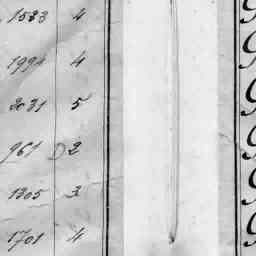 1533 4
1994 4
2031 5
961 2
1305 3
1701 4